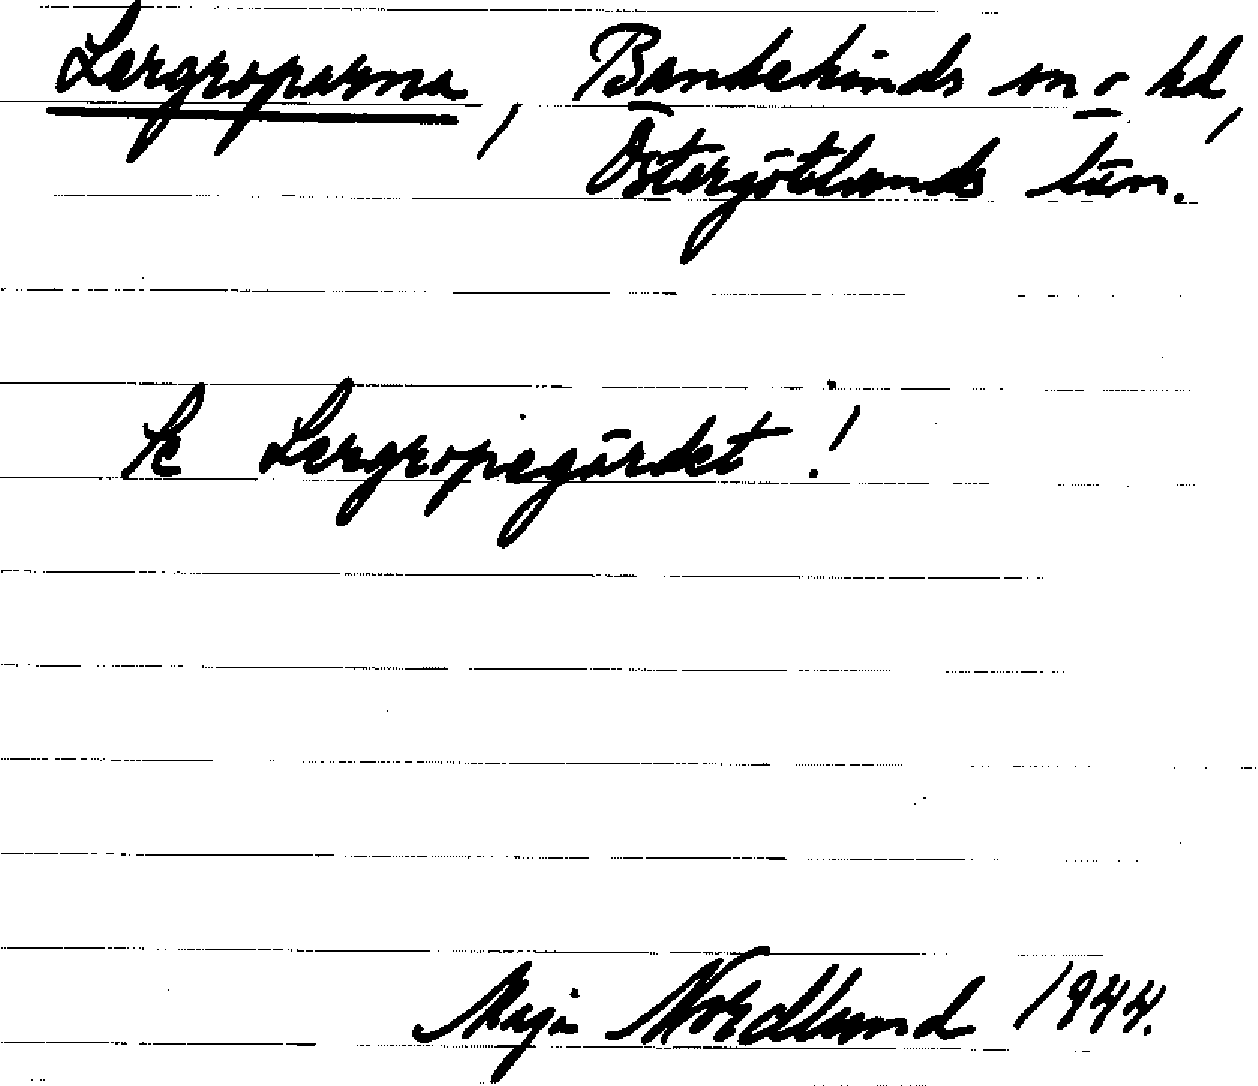 Lergroparna, Bankekinds sn o hd,
Östergötlands län.
Se Lergropegärdet!
Maja Nordlund 1944.